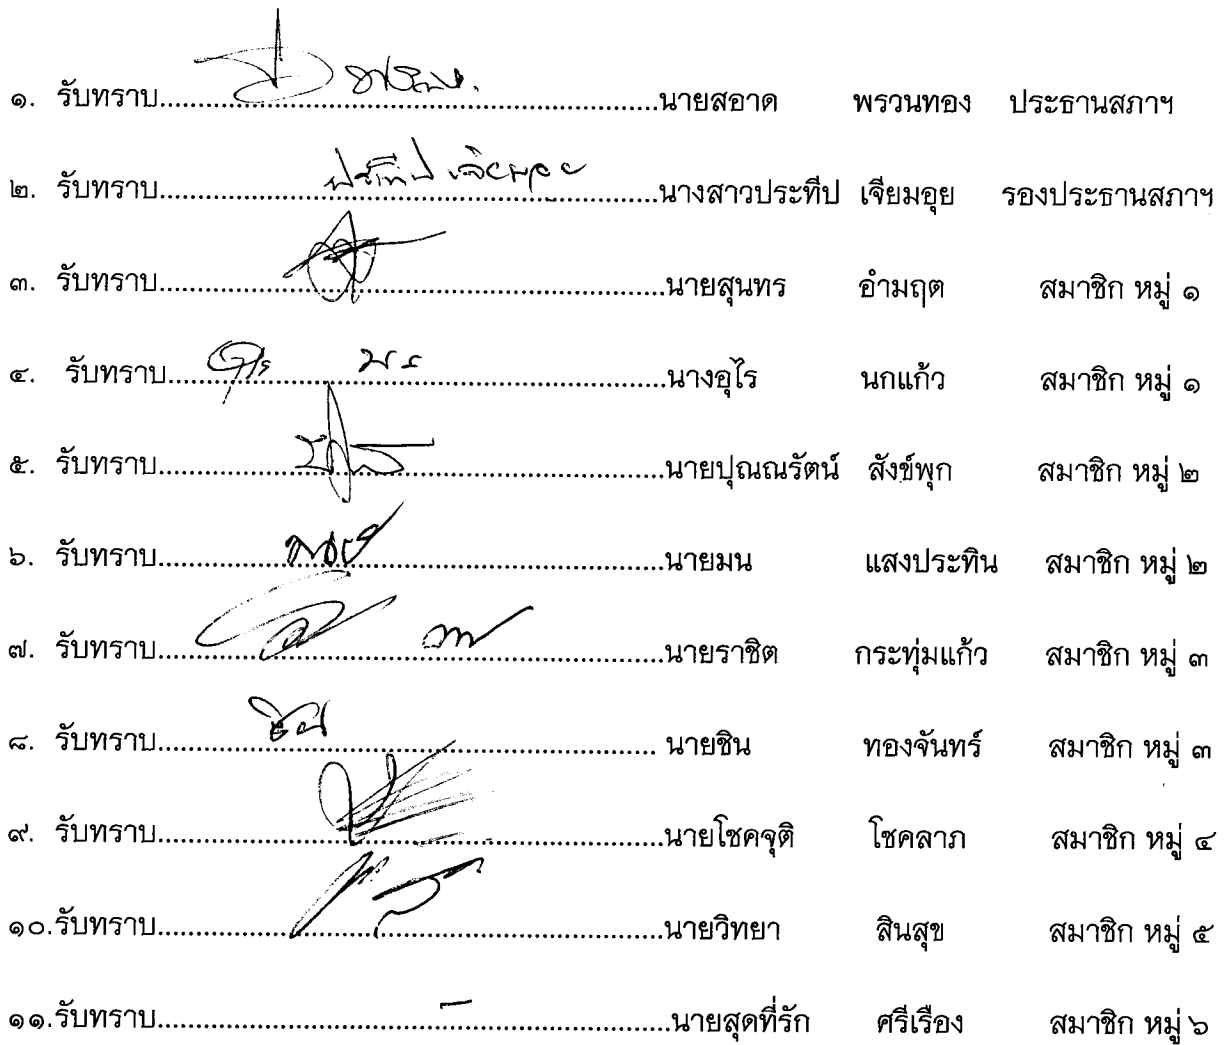 ๑. รับทราบ..........................................................นายสอาด พรวนทอง ประธานสภาฯ
๒. รับทราบ....ประทีป เจียมอุย....นางสาวประทีป เจียมอุย รองประธานสภาฯ
๓. รับทราบ..........................................................นายสุนทร อำมฤต สมาชิก หมู่ ๑
๔. รับทราบ..........................................................นางอุไร นกแก้ว สมาชิก หมู่ ๑
๕. รับทราบ..........................................................นายปุณณรัตน์ สังข์พุก สมาชิก หมู่ ๒
๖. รับทราบ..........................................................นายมน แสงประทิน สมาชิก หมู่ ๒
๗. รับทราบ..........................................................นายราชิต กระทุ่มแก้ว สมาชิก หมู่ ๓
๘. รับทราบ.......................................................... นายชิน ทองจันทร์ สมาชิก หมู่ ๓
๙. รับทราบ..........................................................นายโชคจุติ โชคลาภ สมาชิก หมู่ ๔
๑๐.รับทราบ..........................................................นายวิทยา สินสุข สมาชิก หมู่ ๕
๑๑.รับทราบ..........................................................นายสุดที่รัก ศรีเรือง สมาชิก หมู่ ๖